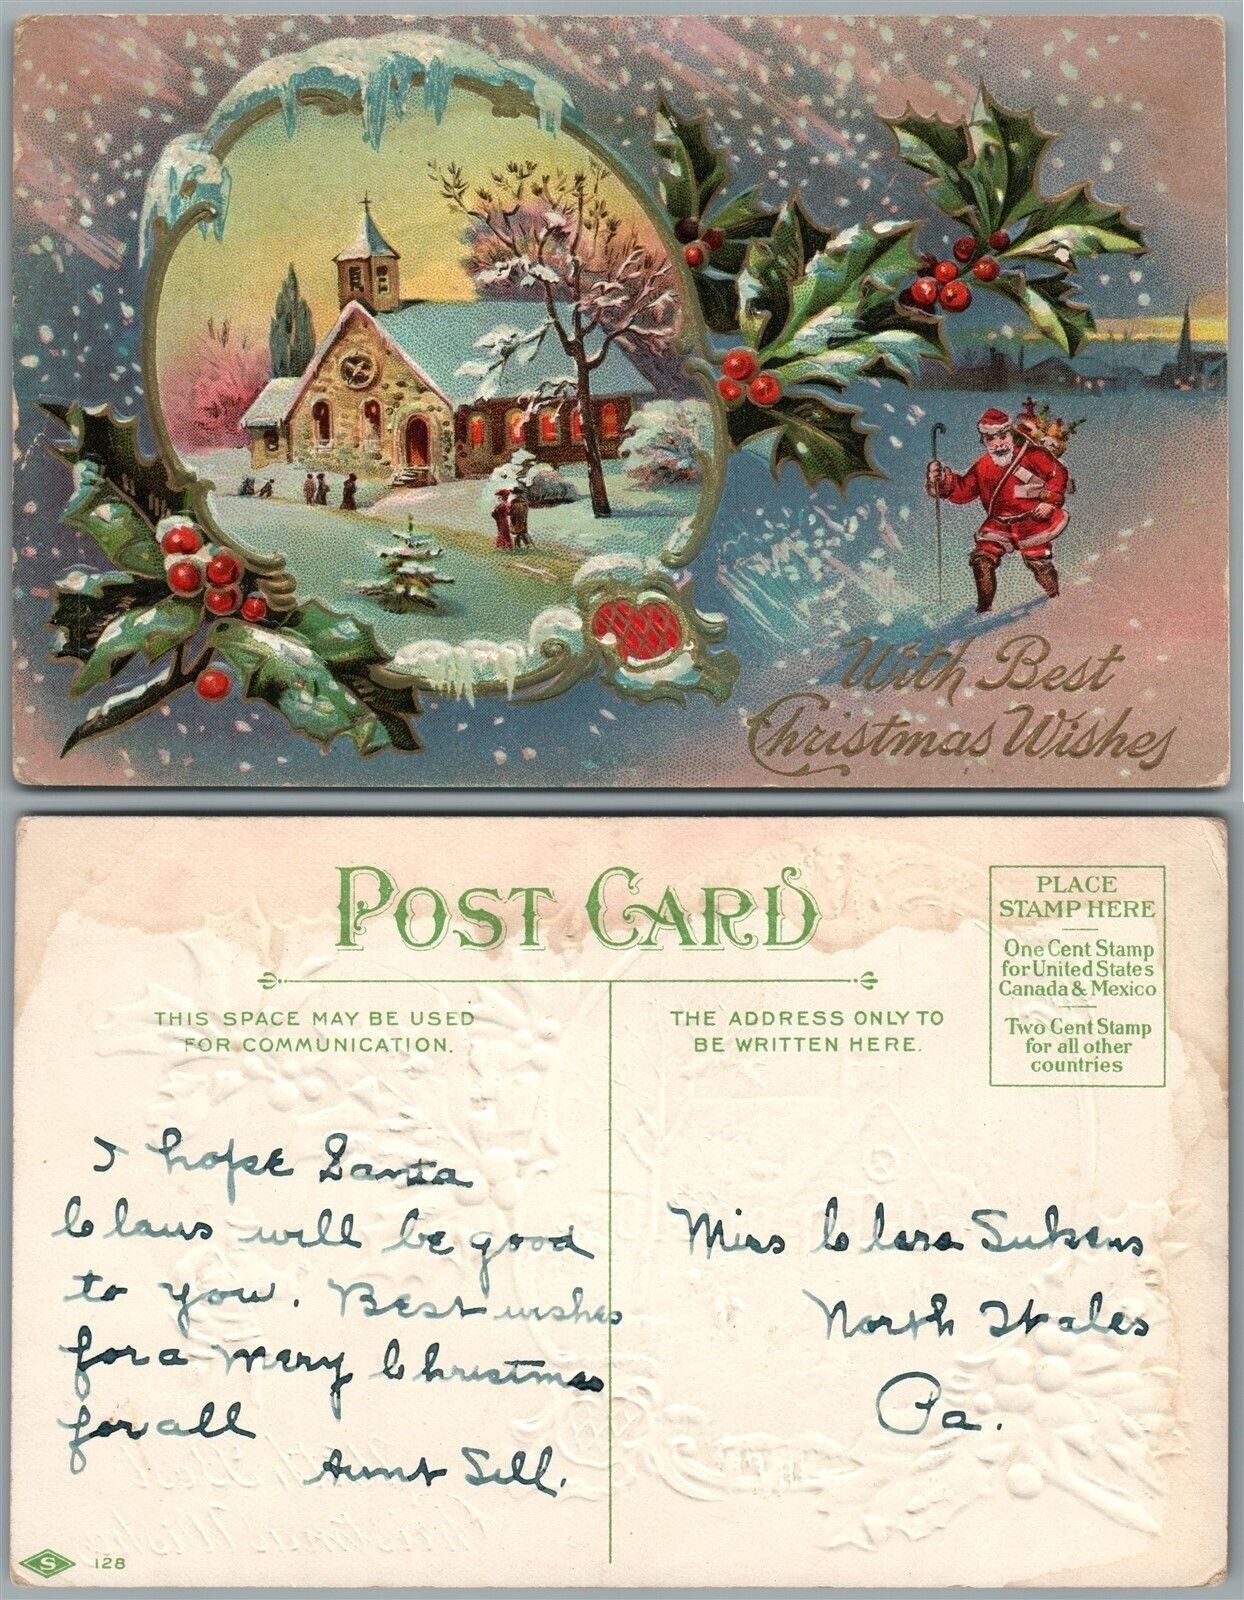 With Best
Christmas Wishes
POST CARD
THIS SPACE MAY BE USED
FOR COMMUNICATION.
THE ADDRESS ONLY TO
BE WRITTEN HERE.
PLACE
STAMP HERE
One Cent Stamp
for United States
Canada & Mexico
Two Cent Stamp
for all other
countries
I hope Santa
Claus will be good
to you. Best wishes
for a Mery Christmas
for all
Aunt Sell.
Miss Clara
North Wales
Pa.
S 128